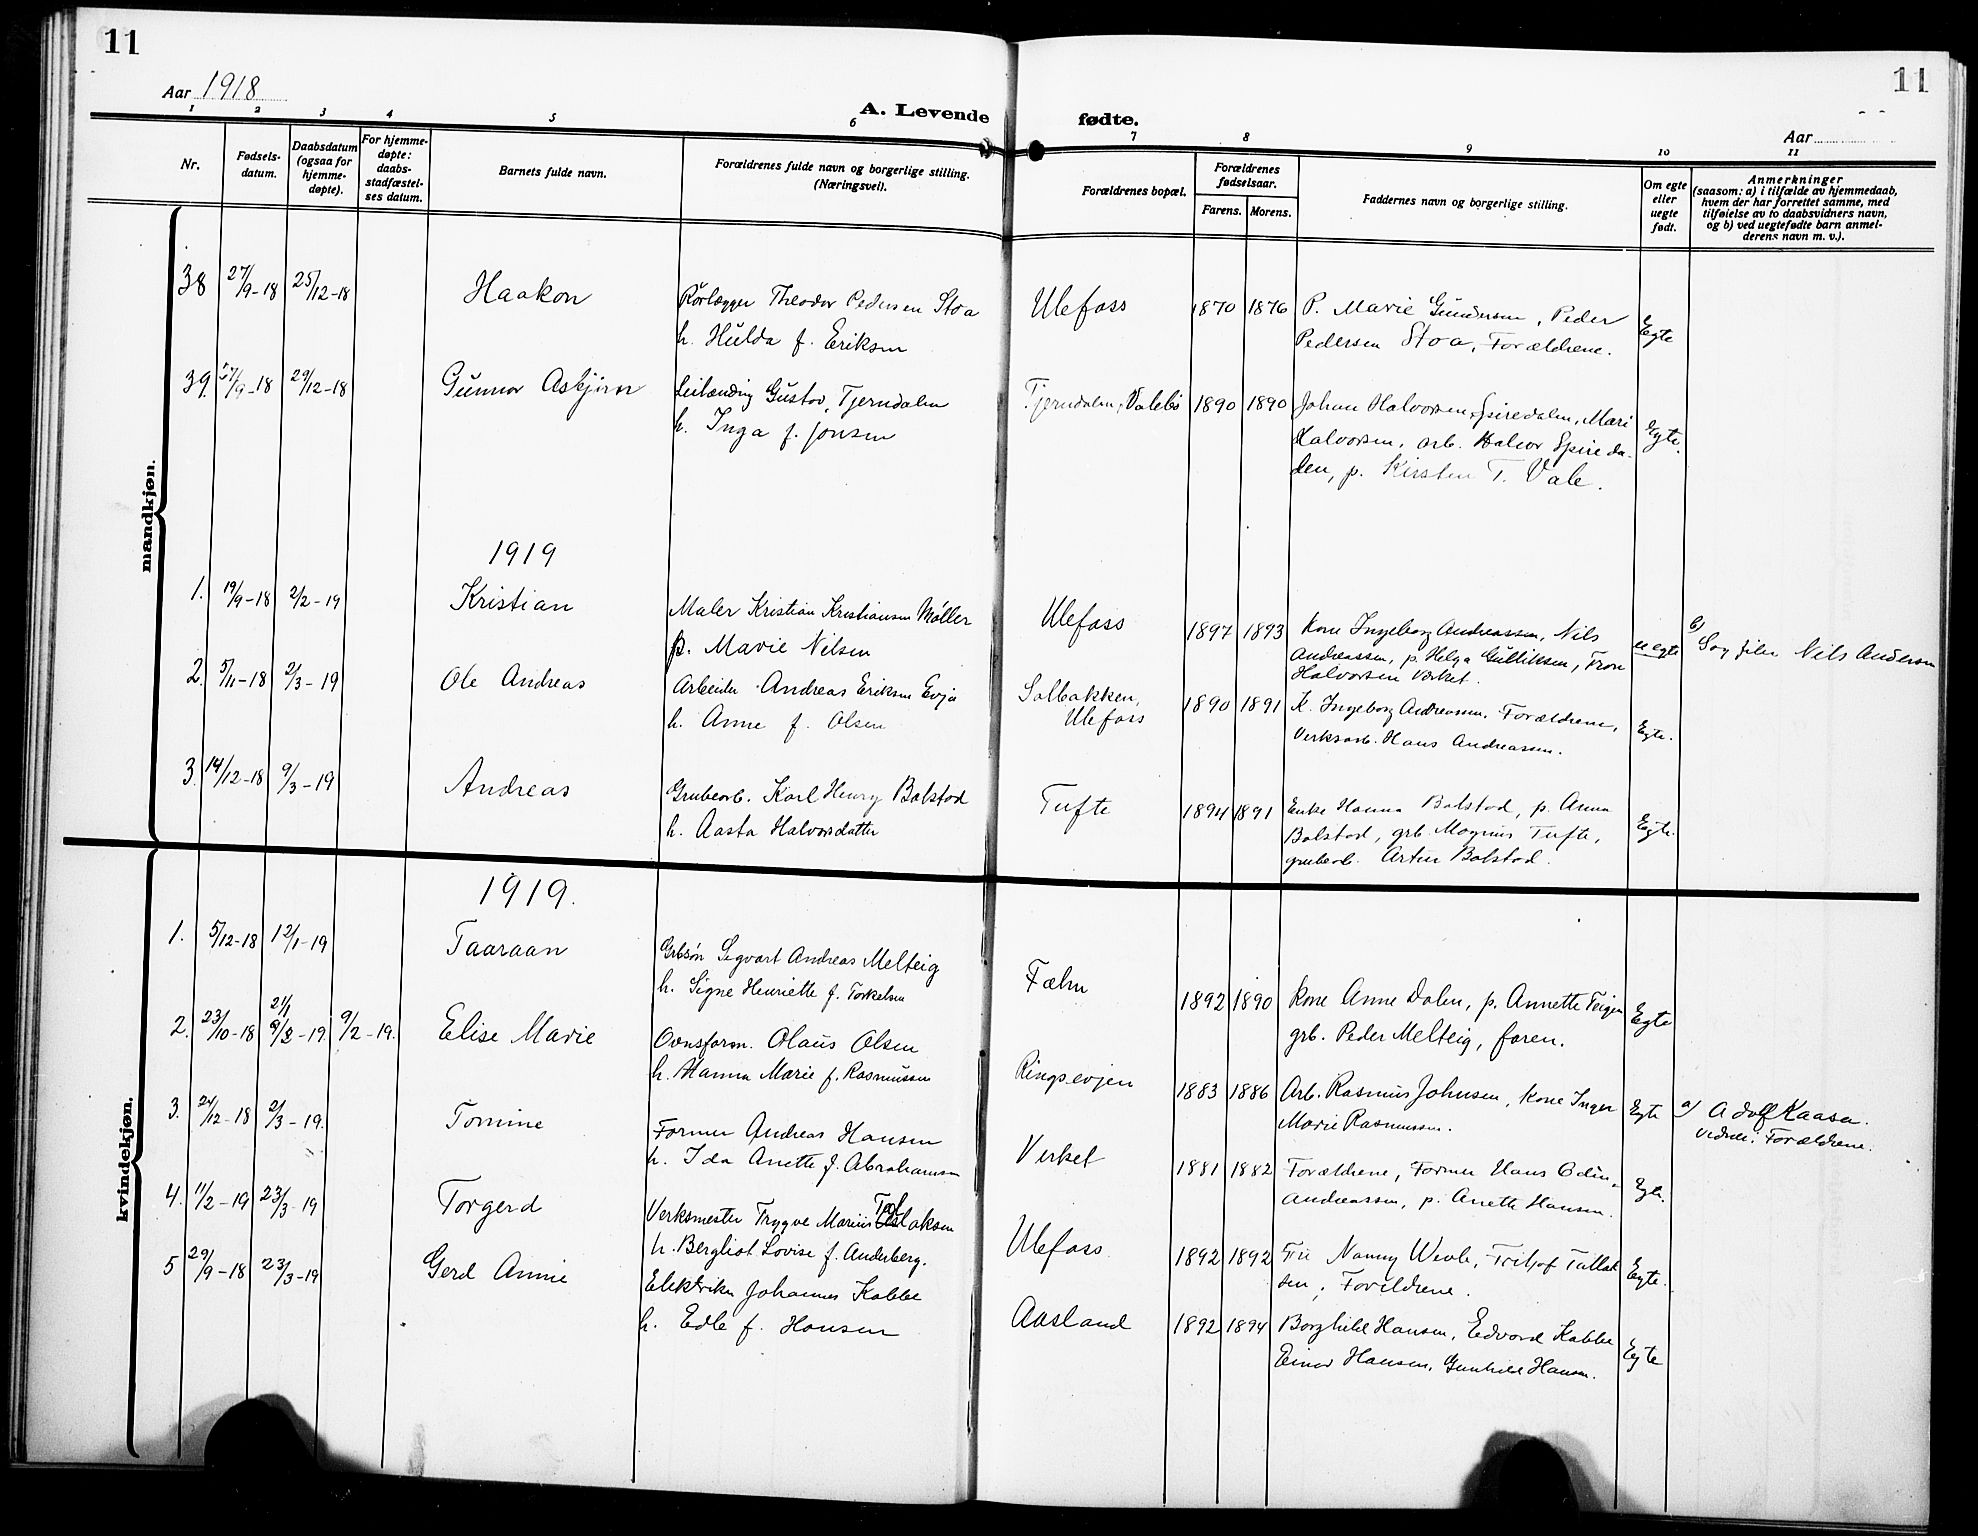 11
11
Aar 1918
A. Levende fødte.
Aar
1 2 3 4 5 6 7 8 9 10 11
Nr.
Fødsels-
datum.
Daabsdatum
(ogsaa for
hjemme-
døpte).
For hjemme-
døpte:
daabs-
stadfæstel-
ses datum.
Barnets fulde navn.
Forældrenes fulde navn og borgerlige stilling.
(Næringsvei).
Forældrenes bopæl.
Forældrenes
fødselsaar.
Farens. Morens.
Faddernes navn og borgerlige stilling.
Om egte
eller
uegte
født.
Anmerkninger
(saasom: a) i tilfælde av hjemmedaab,
hvem der har forrettet samme, med
tilføielse av to daabsvidners navn,
og b) ved uegtefødte barn anmel-
derens navn m. v.).
mandkjøn.
38 27/9-18 25/12-18 Haakon Rørlægger Theodor Pedersen Stoa Ulefoss 1870 1876 P. Marie Gundersen, Peder Egte
h. Hulda f. Eriksen Pedersen Stoa, Forældrene.
39. 27/9-18 29/12-18 Gunnar Asbjørn Leilænding Gustav Tjerndalen Tjerndalen, Valebø 1890 1890 Johan Halvorsen Spiredalen, Mari Egte.
h. Inga f. Jonsen Halvorsen, arb. Halvor Spireda-
len, p. Kirsten T. Vale.
1919
1. 19/9-18 2/2-19 Kristian Maler Kristian Kristiansen Møller Ulefoss 1897 1893 Kone Ingeborg Andreassen, Nils uegte b) Sagfiler Nils Andersen
p. Marie Nilsen Andreassen, p. Helga Gulliksen, Tron
Halvorsen Verket.
2. 5/11-18 2/3-19 Ole Andreas Arbeider Andreas Eriksen Evja Solbakken, 1890 1891 K. Ingeborg Andreassen, Forældrene, Egte.
h. Anne f. Olsen Ulefoss Verksarb. Hans Andreassen.
3. 14/12-18 9/3-19 Andreas Grubearb. Karl Henry Bolstad Tufte 1894 1891 Enke Hanna Bolstad, p. Anna Egte.
h. Aasta Halvorsdatter Bolstad, grb. Magnus Tufte,
grubearb. Artur Bolstad.
kvindekjøn.
1919.
1. 5/12-18 12/1-19 Taaraan Grbsøn Sigvart Andreas Melteig Fæhn 1892 1890 Kone Anne Dalen, p. Annette Teigen Egte
h. Signe Henriette f. Torkelsen grb. Peder Melteig, faren.
2. 23/10-18 21/1 9/2-19. 9/2-19. Elise Marie Ovnsform. Olaus Olsen Ringsevjen 1883 1886 Arb. Rasmus Johnsen, Kone Inger Egte a) Adolf Kaasa.
h. Hanna Marie f. Rasmussen Marie Rasmussen. vidner: Forældrene.
3. 24/12-18 2/3-19. Tomine Former Andreas Hansen Verket 1881 1882 Forældrene, Former Hans Odin Egte.
h. Ida Anette f. Abrahamsen Andreassen, p. Anette Hansen.
4. 11/2-19 23/3-19 Torgerd Verksmester Trygve Marius Tollaksen Ulefoss 1892 1892 Fru Nanny Weole, Fritjof Tallak Egte.
h. Bergliot Lovise f. Anderberg. sen, Forældrene.
5 29/9-18 23/3-19 Gerd Annie Elektriker Johannes Kabbe Aasland 1892 1894 Borghild Hansen, Edvard Kabbe Egte
h. Edle f. Hansen Einar Hansen, Gunhild Hansen.